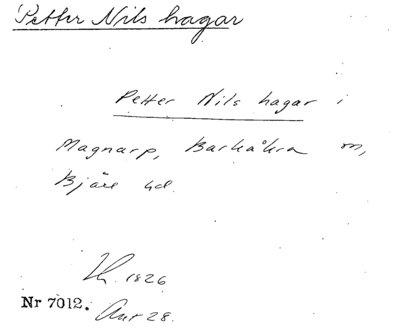 Petter Nils hagar
Petter Nils hagar i
Magnarp, Barkåkra sn,
Bjäre hd.
1826
Nr 7012.
28.